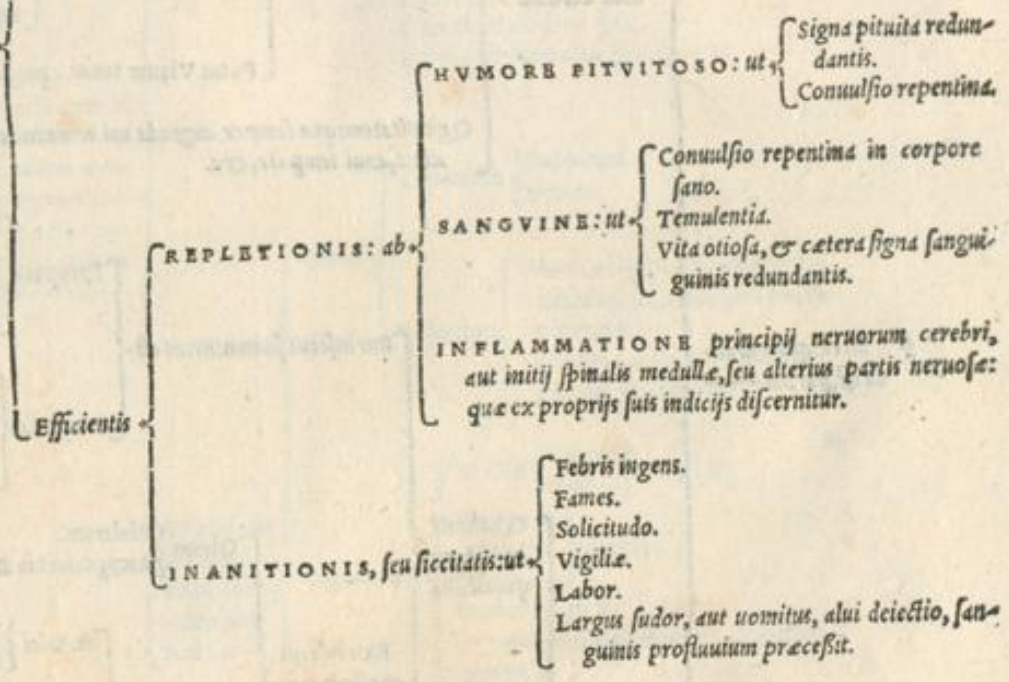 HVMORE PITVITOSO: ut
Signa pituita redun-
dantis.
Conuulſio repentina.
SANGVINE: ut
Conuulſio repentina in corpore
ſano.
Temulentia.
Vita otioſa, & cætera ſigna ſangui-
guinis redundantis.
REPLETIONIS: ab
INFLAMMATIONE principij neruorum cerebri,
aut initij ſpinalis medullæ, ſeu alterius partis neruoſæ:
quæ ex proprijs ſuis indicijs diſcernitur.
Efficientis
INANITIONIS, ſeu ſiccitatis: ut
Febris ingens.
Fames.
Solicitudo.
Vigiliæ.
Labor.
Largus ſudor, aut uomitus, alui deiectio, ſan-
guinis profluuium præceßit.